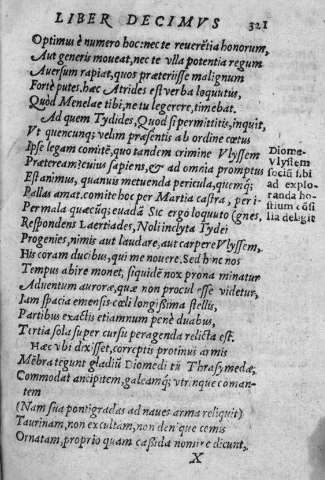 LIBER DECIMVS 321
Optimus è numero hoc: nec te reuerẽtia honorum,
Aut generis moueat, nec te vlla potentia regum
Auersum rapiat, quos præterijsse malignum
Forte putes, hæc Atrides est verba loquutus,
Quòd Menelae tibi, ne tu legerere, timebat.
Ad quem Tydides, Quòd si permittitis, inquit,
Vt quencunq; velim præsentis ab ordine cœtus
Ipse legam comitẽ, quo tandem crimine Vlyssem
Prætereamꝰ cuius sapiens, & ad omnia promptus
Est animus, quanuis metuenda pericula, quemq;
Pallas amat. comite hoc per Martia castra, per i-
Per mala quæcũq; euadã. Sic ergo loquuto (gnes,
Respondens Laertiades, Noli inclyta Tydei
Progenies, nimis aut laudare, aut carpere Vlyssem,
His coram ducibus, qui me nouere. Sed hinc nos
Tempus abire monet, siquidẽ nox prona minatur
Aduentum auroræ, quæ non procul esse videtur,
Iam spacia emensis cœli longissima stellis,
Partibus exactis etiamnum penè duabus,
Tertia sola super cursu peragenda relicta est.
Hæc vbi dixisset, correptis protinus armis
Mẽbra tegunt gladiũ Diomedi tũ Thrasymedæ,
Commodat ancipitem, galeamq; vtrinque coman-
tem
(Nam sua pontigradas ad naues arma reliquit)
Taurinam, non excultam, non denique conis
Ornatam, proprio quam cassida nomine dicunt,
X
Diome-
Vlyssem
sociũ sibi
ad explo-
randa ho-
stium cõsi
lia delegit